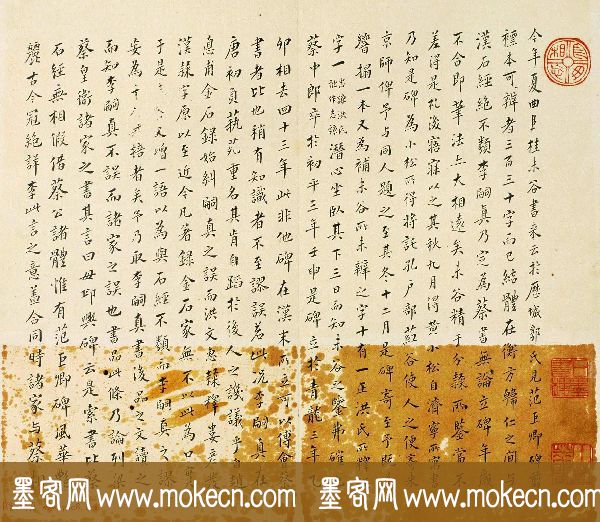 今年夏曲阜桂未谷書來云於歷城郭氏見范巨卿碑舊
標本可辨者三百三十字而已結體在衡方韓仁之間與
漢石經絕不類李嗣真乃定為蔡書無論立碑年歲
不合即筆法亦大相遠矣未谷精于分隸所鑒當不
差得是札後寤寐以之其秋九月得黃小松自濟寧所寄書
乃知是碑為小松所得將託孔戶部葒谷使人之便寄來
京師俾予與同人題之至其冬十二月是碑寄至予既
響搨一本又為補未谷所未辨之字十有一正洪氏所釋
字一
潛心坐臥其下三日而知未谷之鑒弗確
蔡中郎卒於初平三年壬申是碑立於青龍三年乙
卯相去四十三年此非他碑在漢末而立可以傅會蔡
書者比也稍有知識者不至謬誤若此況李嗣真在
唐初負藝苑重名其肯自蹈於後人之譏議乎自趙
惪甫金石錄始糾嗣真之誤而洪文惠隸釋婁彥發
漢隸字原以至近今凡著錄金石家無不以此為口實
于是 又增一語以為與石經不類而李嗣真之謬
妄為 揜者矣予乃取李嗣真書後品之文讀之
而知李嗣真不誤而諸家之誤也書品此條乃論列梁
蔡皇衛諸家之書其言曰毋邱興碑云是索書比蔡
石經無相假借蔡公諸體惟有范巨卿碑風華艷
麗古今冠絕詳李此言之意蓋合同時諸家與蔡
墨客网 www.mokecn.com 墨客网 www.mokecn.com